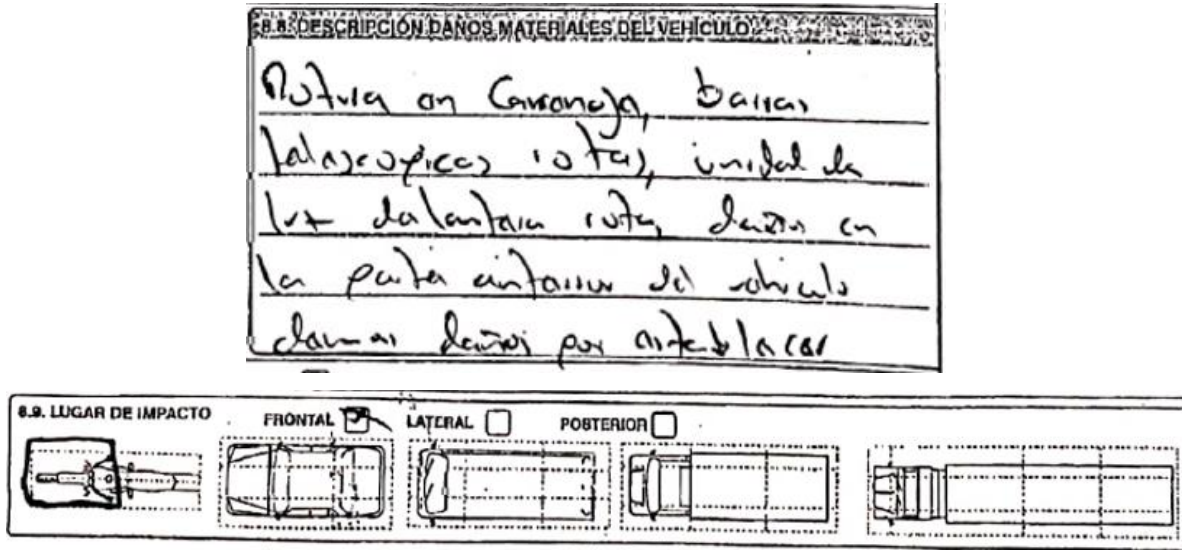 8.8. DESCRIPCIÓN DAÑOS MATERIALES DEL VEHÍCULO
Rotura en Carcenaja, barras
telascopicas rotas, unidad de
luz delantera rota, daños en
la parte anterior del vehiculo
demas daños por establecer
8.9. LUGAR DE IMPACTO FRONTAL LATERAL POSTERIOR